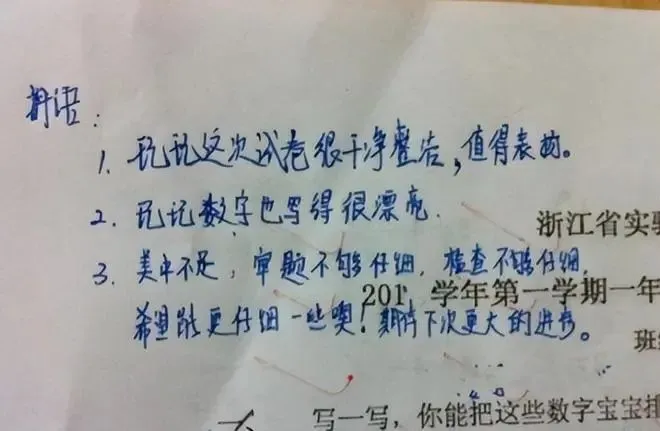 评语：
1. 玩玩这次试卷很干净整洁，值得表扬。
2. 玩玩数字也写得很漂亮.
浙江省实
3. 美中不足，审题不够仔细，检查不够仔细，
201 学年第一学期一年
希望能更仔细一些噢！期待下次更大的进步。
班
写一写，你能把这些数字宝宝排